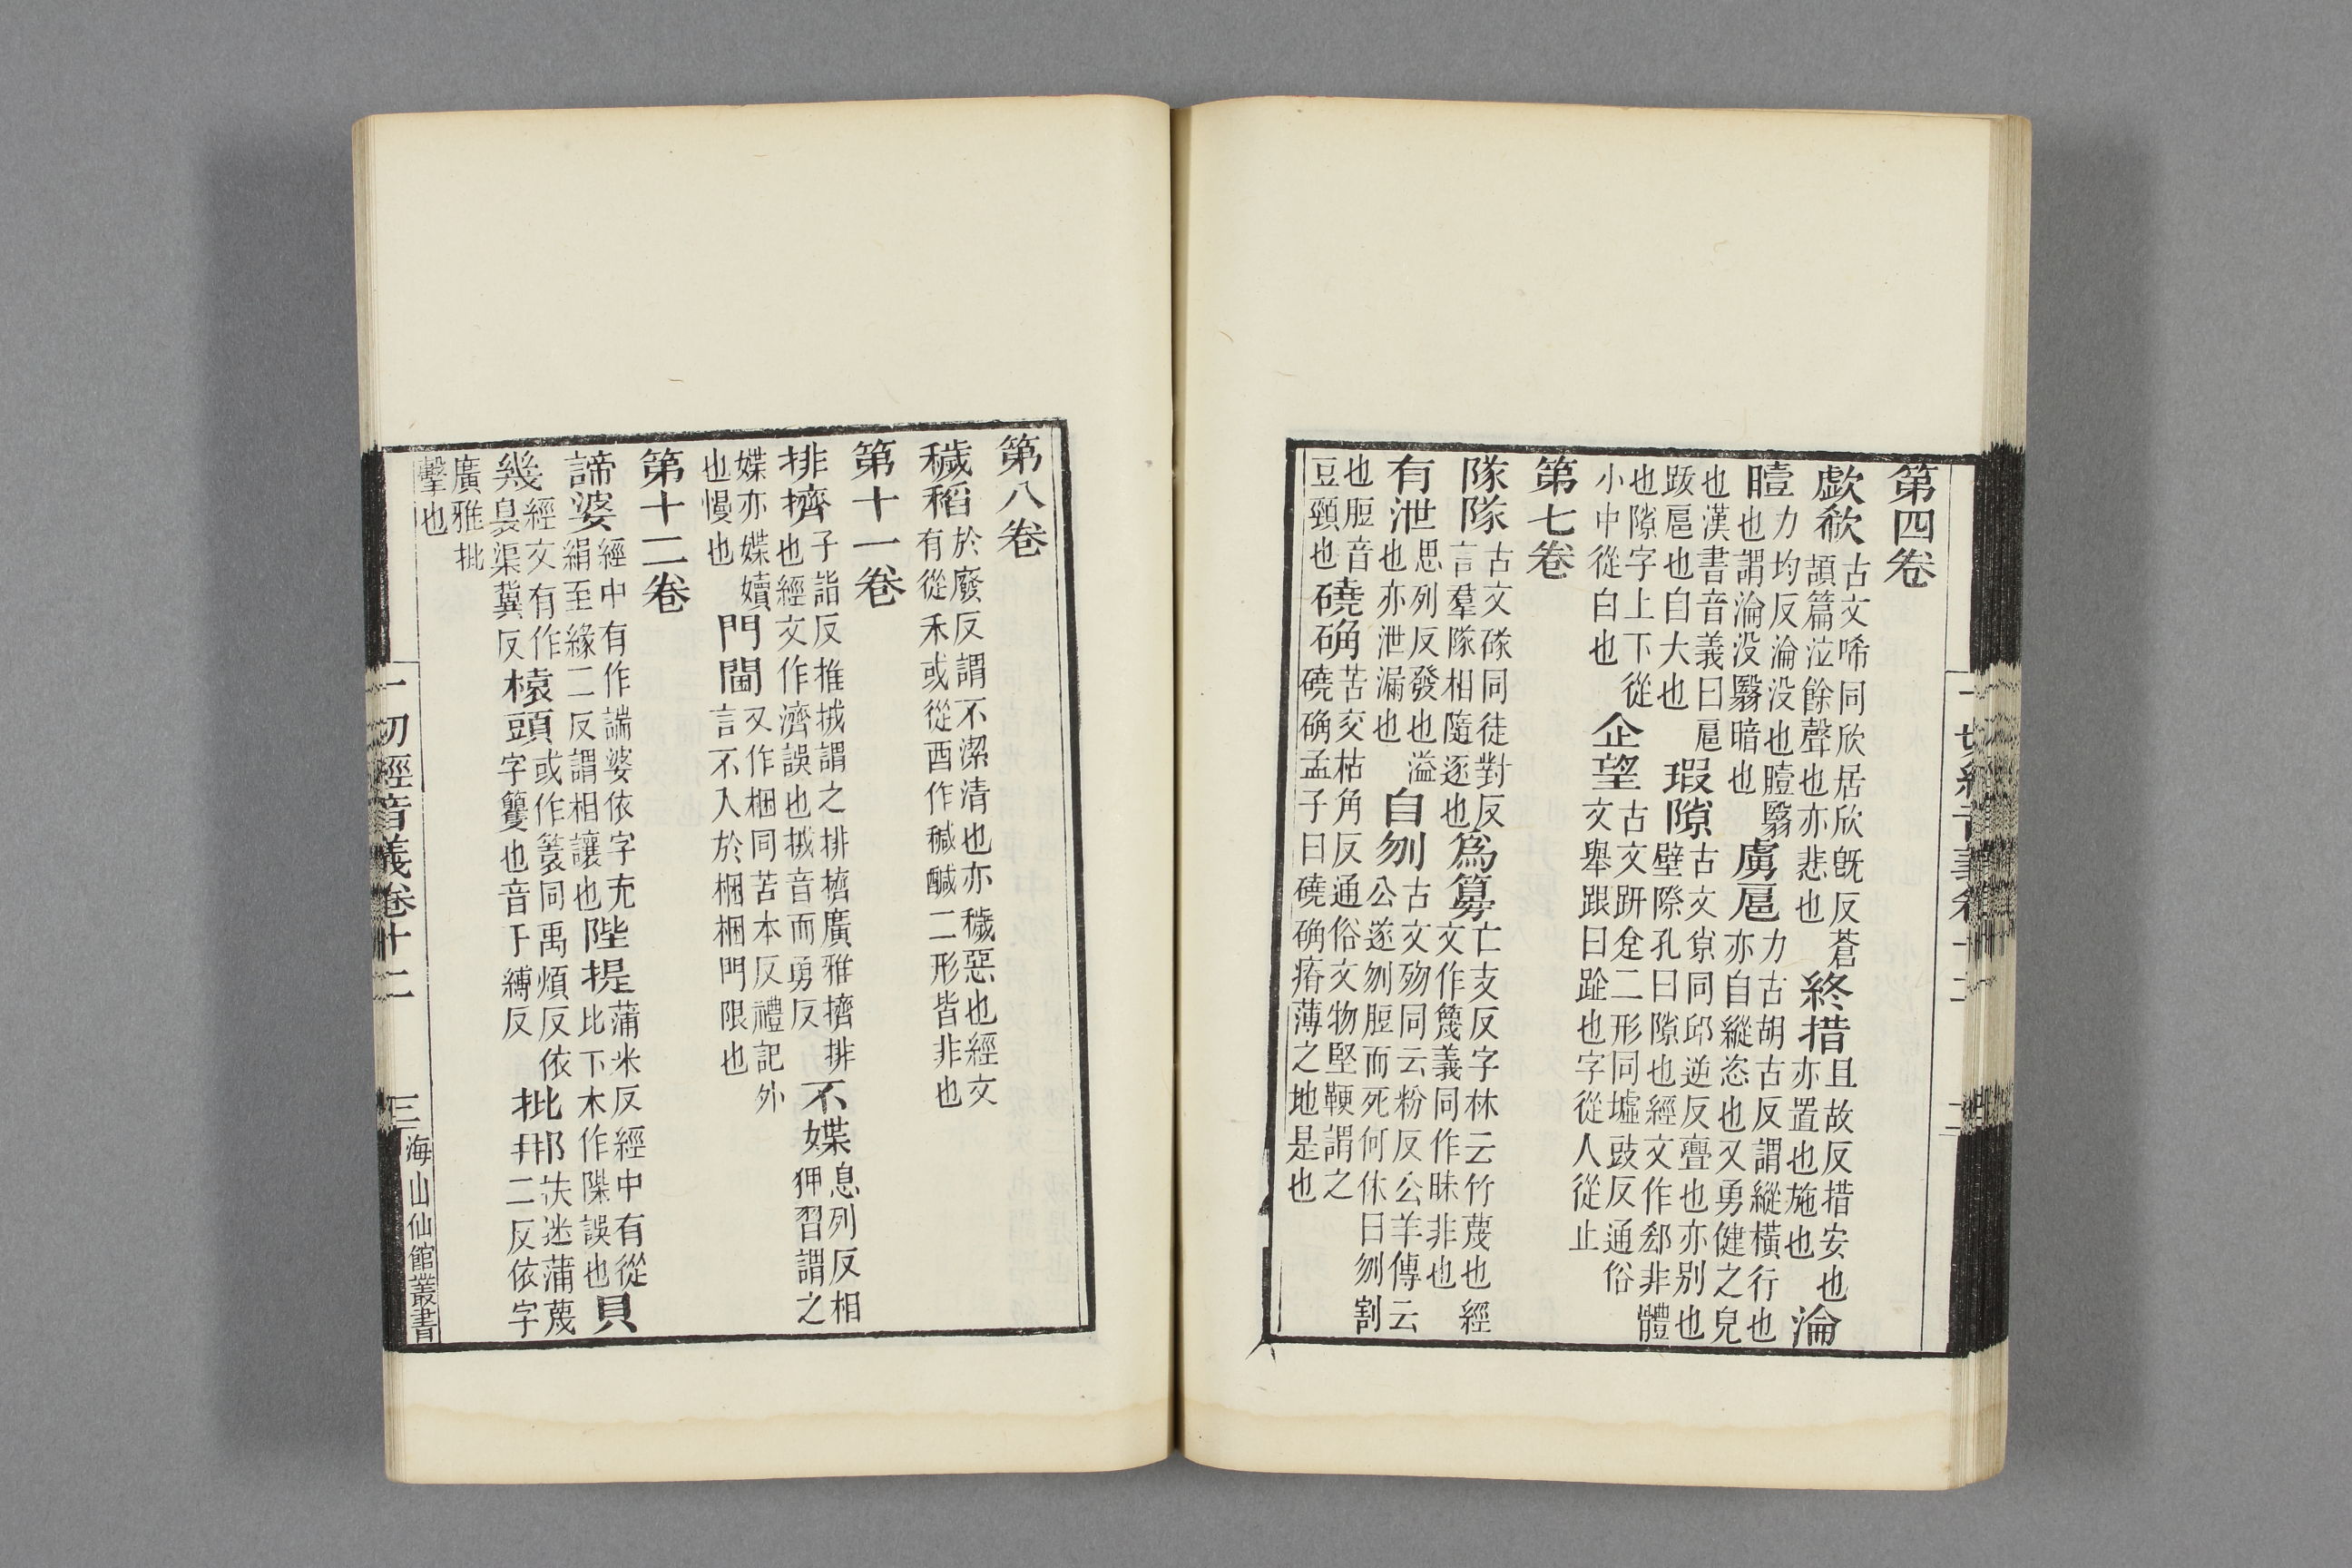 第四卷
歔欷古文唏同欣居欣旣反蒼頡篇泣餘聲也亦悲也終措且故反措安也亦置也施也淪
曀力均反淪没也曀翳也謂淪没翳暗也虜扈力古胡古反謂縱橫行也亦自縱恣也又勇健之皃
也漢書音義曰扈跋扈也自大也瑕隙古文𡭴同邱逆反亹也亦别也壁際孔曰隙也經文作郄非體
也隙字上下從小中從白也企望古文趼㐰二形同墟豉反通俗文舉跟曰跐也字從人從止
第七卷
隊隊古文䃍同徒對反言羣隊相隨逐也爲篣亡支反字林云竹蔑也經文作篾義同作昧非也
有泄思列反發也溢也亦泄漏也自刎古文歾同云粉反公羊傳云公遂刎脰而死何休曰刎割
也脰音豆頸也磽确苦交枯角反通俗文物堅鞕謂之磽确孟子曰磽确瘠薄之地是也
一切經音義卷十二
二
第八卷
穢稻於廢反謂不潔清也亦穢惡也經文有從禾或從酉作穢醎二形皆非也
第十一卷
排擠子詣反推㧢謂之排擠廣雅擠排也經文作濟誤也㧢音而勇反不媟息列反相狎習謂之
媟亦媟嬻也慢也門閫又作梱同苦本反禮記外言不入於梱梱門限也
第十二卷
諦婆經中有作端婆依字充絹至緣二反謂相讓也陛提蒲米反經中有從比下木作㮰誤也貝
幾經文有作㠱渠冀反榬頭或作籆同禹煩反依字籰也音于縛反批䎶扶迷蒲蔑二反依字
廣雅批擊也
一切經音義卷十二
三
海山仙館叢書